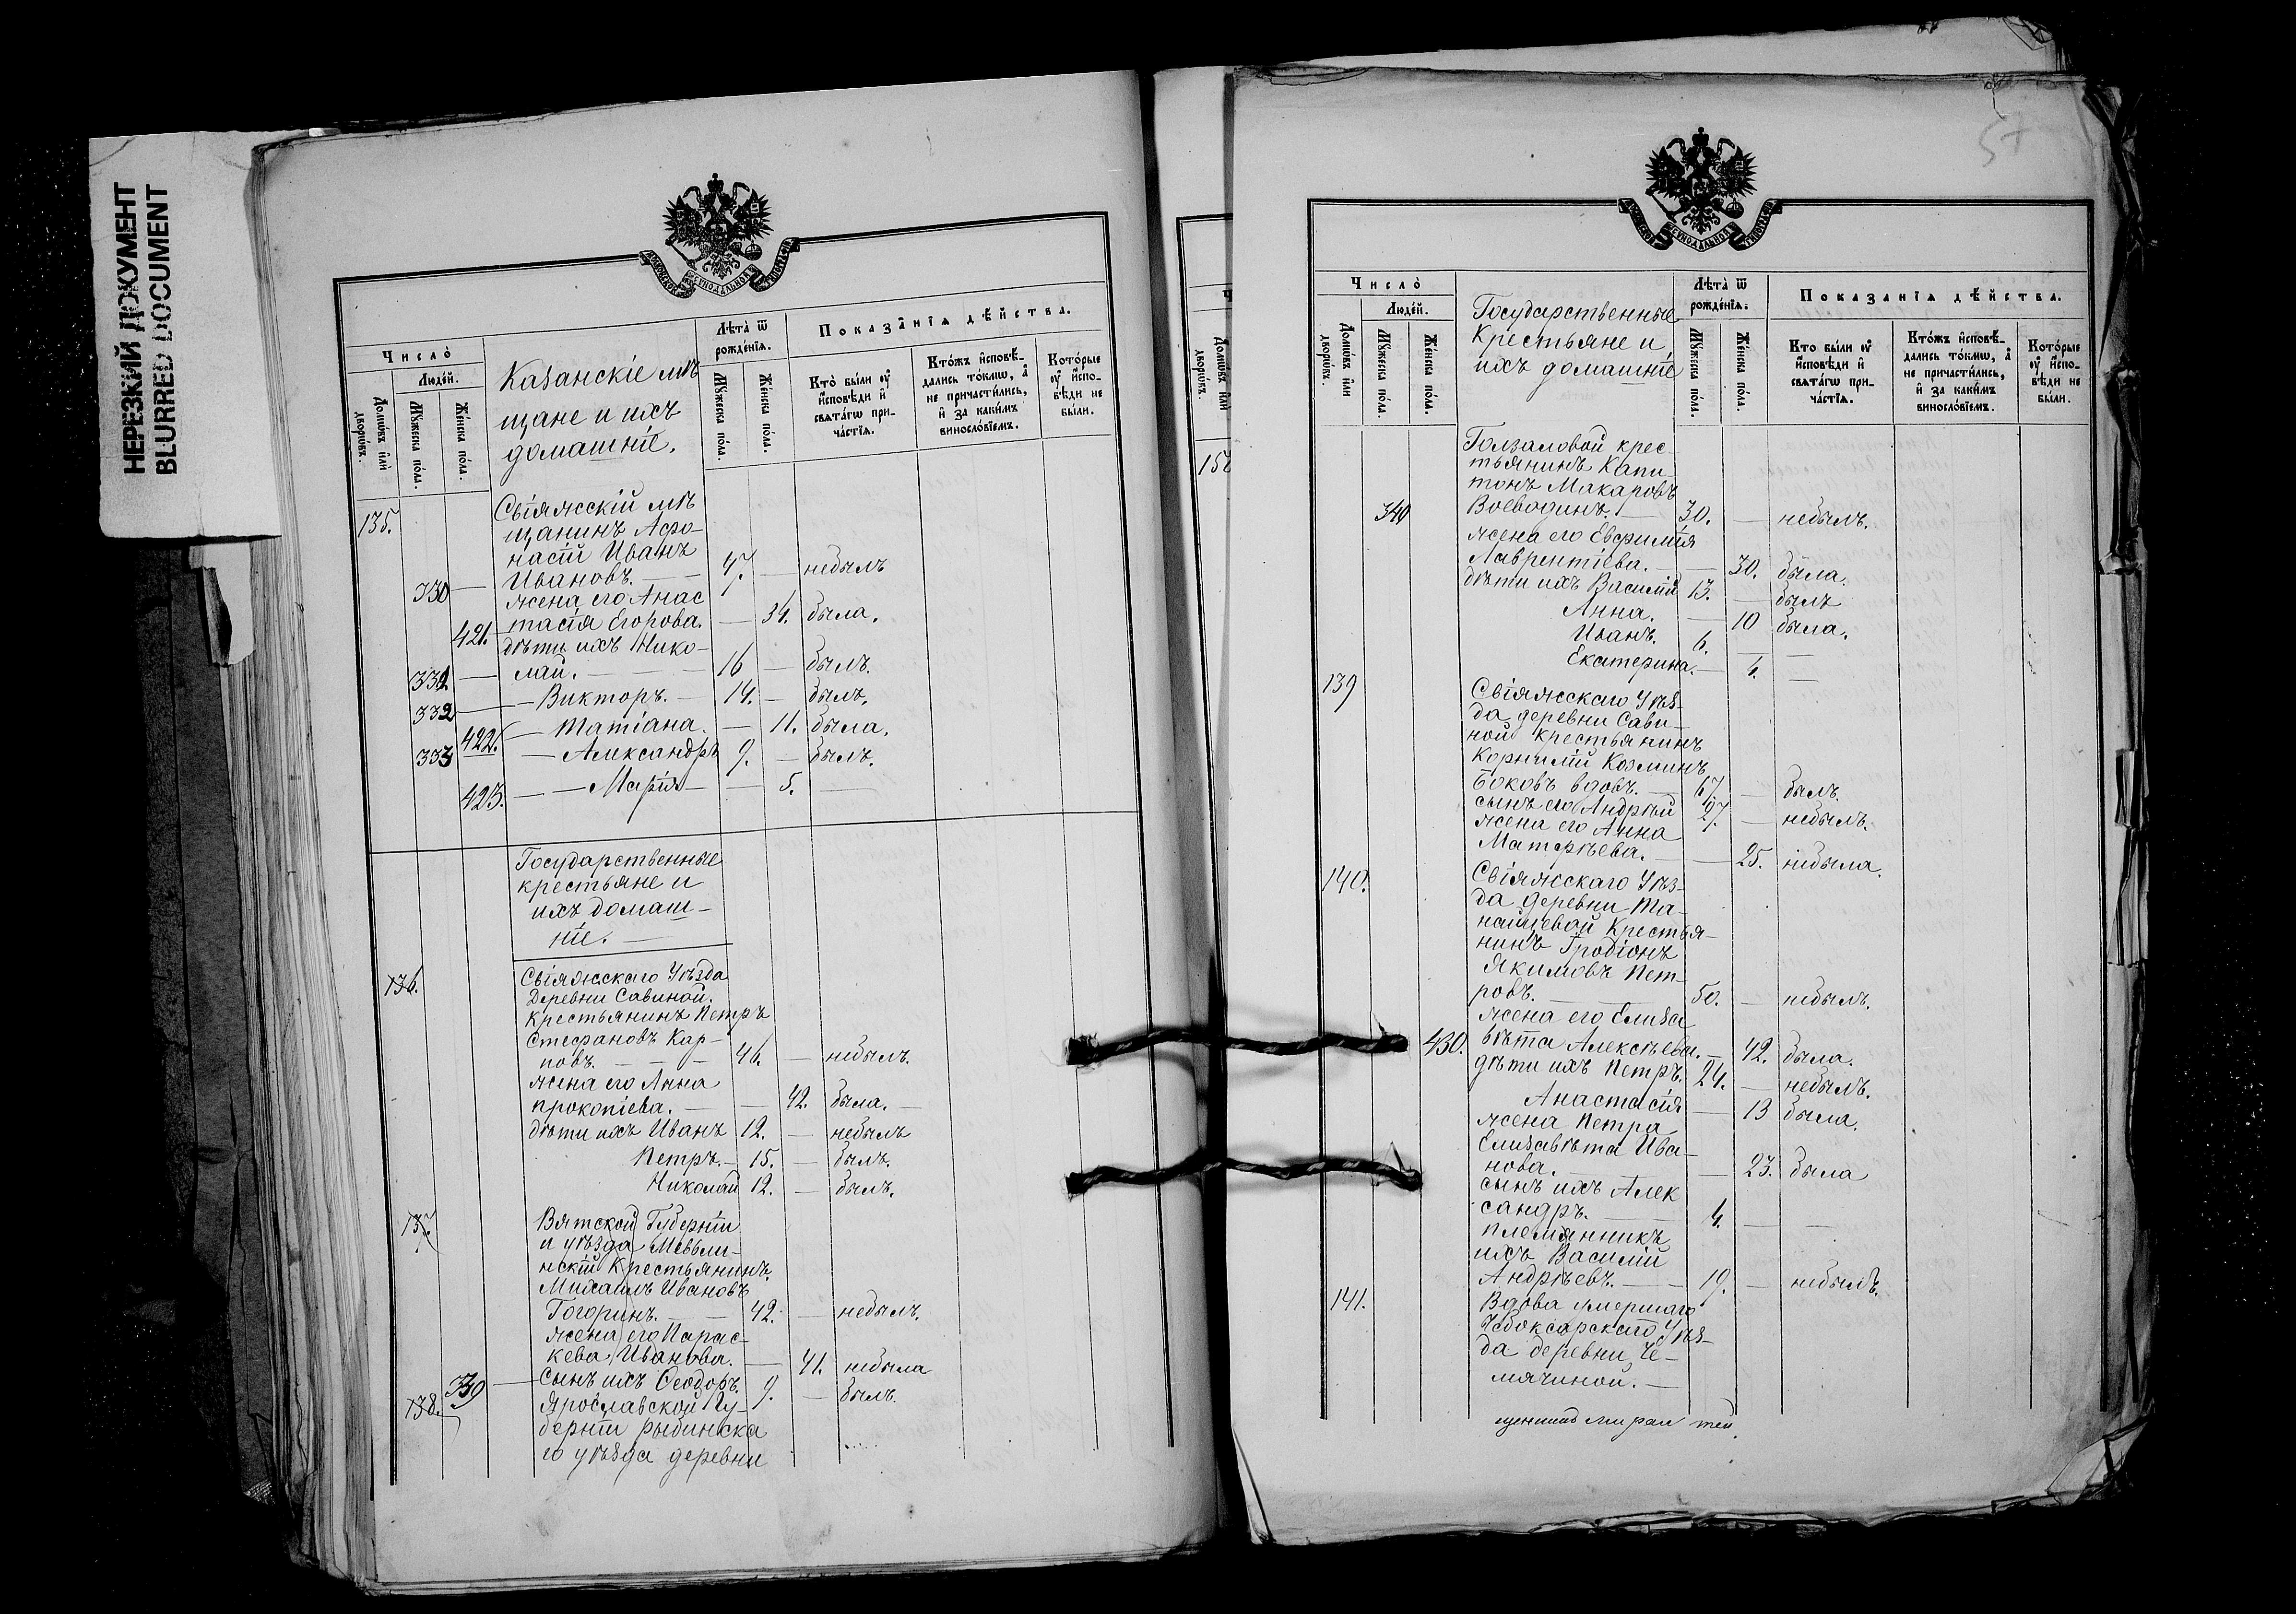 НЕРЕЗКИЙ ДОКУМЕНТ
BLURRED DOCUMENT
Число̀
Людей.
Домѡвъ или дворѡвъ.
Мꙋжеска пола.
Женска пола.
Казанскіе мѣ
щане и ихъ
домашніе.
Лѣта̀ ѿ рожденїѧ.
Мꙋжеска пола.
Женска пола.
Показанїѧ дѣйства.
Кто̀ были оу҆ исповѣди и свѧтагѡ причастїѧ.
Ктожъ исповѣдались токмѡ, а не причастились, и за какимъ винословїемъ.
Которые оу҆ исповѣди не были.
135.
Свіяжскій мѣ
щанинъ Афо-
насій Иванъ
330 — Ивановъ. — 47. — небылъ
жена его Анас
421. тасія Егорова. — 34. была.
дѣти ихъ Нико-
331 — лай. — 16 — былъ.
332 — Викторъ. — 14. — былъ.
422. — Татіана. — 11. была.
333 — Александръ 9. — былъ.
423. — Марія — 5. —
Государственные
крестьяне и
ихъ домаш-
ніе. —
136. Свіяжскаго Уѣзда
Деревни Савиной.
крестьянинъ Петръ
Стефановъ Кар-
повъ. — 46. — небылъ.
жена его Анна
прокопіева. — 42. была. —
дѣти ихъ Иванъ 12. — небылъ
Петръ. — 15. — былъ.
Николай 12. — былъ.
137. Вятской Губерніи
и уѣзда
нскій Крестьянинъ
Михаилъ Ивановъ
Гогоринъ. — 42. — небылъ.
жена его Парас-
кева Иванова. — 41. небыла
339 — Сынъ ихъ Ѳеодоръ. 9. — былъ.
138. Ярославской Гу-
берніи Рыбинска
го уѣзда деревни
57
Число̀
Людей.
Домѡвъ или дворѡвъ.
Мꙋжеска пола.
Женска пола.
Государственные
Крестьяне и
ихъ домашніе
Лѣта̀ ѿ рожденїѧ.
Мꙋжеска пола.
Женска пола.
Показанїѧ дѣйства.
Кто были оу҆ исповѣди и свѧтагѡ причастїѧ.
Ктожъ исповѣдались токмѡ, а не причастились, и за какимъ винословїемъ.
Которые оу҆ исповѣди не были.
Голзаловой крес-
тьянинъ Капи-
тонъ Макаровъ
340 Воеводинъ. — 30. — небылъ.
жена его Евфимія
Лаврентіева. — 30. была.
дѣти ихъ Василій 13. — былъ
Анна. — 10 была.
Иванъ. 6. — —
Екатерина. — 4. —
139 Свіяжскаго Уѣз-
да деревни Сави-
ной крестьянинъ
Корнилій Козминъ
Боковъ вдовъ. — 67. — былъ.
сынъ его Андрей 27. — небылъ.
жена его Анна
Матфѣева. — 25. небыла.
140. Свіяжскаго Уѣз-
да деревни Та-
найцевой Крестья-
нинъ Іродіонъ
Якимовъ Пет-
ровъ. — 50. — небылъ.
жена его Елиза
430. вѣта Алексѣева. — 42. была.
дѣти ихъ Петръ. 24. — небылъ.
Анастасія — 13 была.
жена Петра
Елизавѣта Ива-
нова. — 23. была
сынъ ихъ Алек
сандръ. — 4. — —
племянникъ
ихъ Василій
Андрѣевъ. — 19. — небылъ.
141. Вдова умершаго
Чебоксарскаго Уѣз-
да деревни Че-
мячиной. —